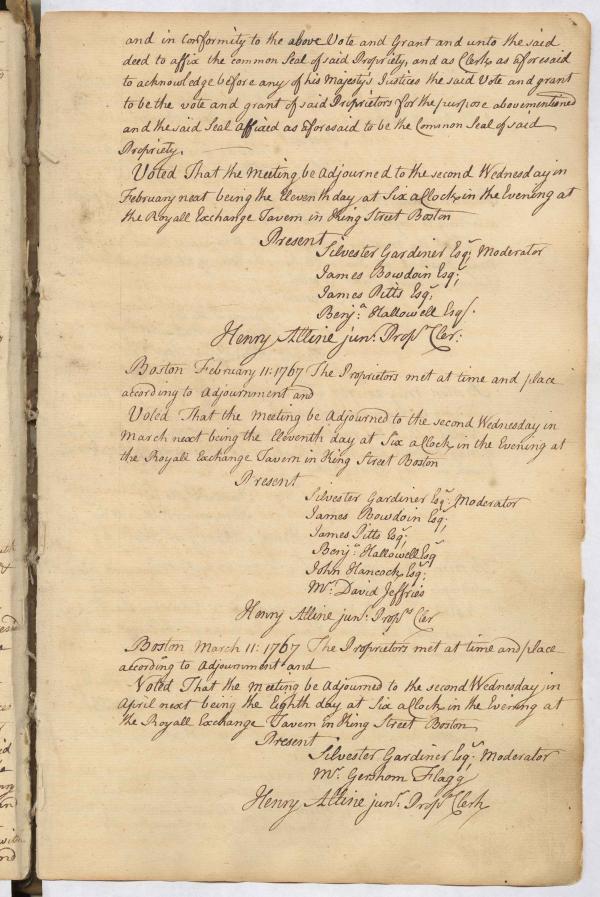 and in conformity to the above Vote and Grant and unto the said
deed to affix the common Seal of said Propriety, and as Clerk as aforesaid
to acknowledge before any of his Majesty's Justices the said Vote and grant
to be the vote and grant of said Proprietors for the purpose abovementioned
and the said Seal affixed as aforesaid to be the Common Seal of said
Propriety.
Voted That the Meeting be Adjourned to the second Wednesday in
February next being the Eleventh day at Six aClock in the Evening at
the Royall Exchange Tavern in King Street Boston
Present
Silvester Gardiner Esqr; Moderator
James Bowdoin Esqr;
James Pitts Esqr;
Benja: Hallowell Esqr.
Henry Alline junr. Proprs Cler:
Boston February 11: 1767 The Proprietors met at time and place
according to Adjournment and
Voted That the Meeting be Adjourned to the second Wednesday in
March next being the Eleventh day at Six aClock in the Evening at
the Royall Exchange Tavern in King Street Boston
Present
Silvester Gardiner Esqr: Moderator
James Bowdoin Esqr;
James Pitts Esqr;
Benja: Hallowell Esqr
John Hancock Esqr;
Mr. David Jeffries
Henry Alline junr. Proprs Cler
Boston March 11: 1767 The Proprietors met at time and place
according to Adjournment and
Voted That the Meeting be Adjourned to the second Wednesday in
April next being the Eighth day at Six aClock in the Evening at
the Royall Exchange Tavern in King Street Boston
Present
Silvester Gardiner Esqr; Moderator
Mr. Gershom Flagg
Henry Alline junr. Proprs Clerk